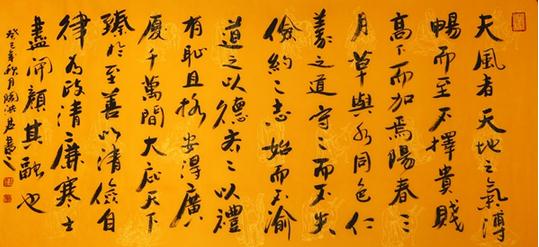 天風者天地之氣溥
暢而至不擇貴賤
高下而加焉陽春二
月草與水同色仁
義之道守之而不失
儉約之志始而不渝
道之以德齊之以禮
有恥且格安得廣
廈千萬間大庇天下
臻於至善以清儉自
律為政清廉寒士
盡開顏其融也
癸巳年秋月